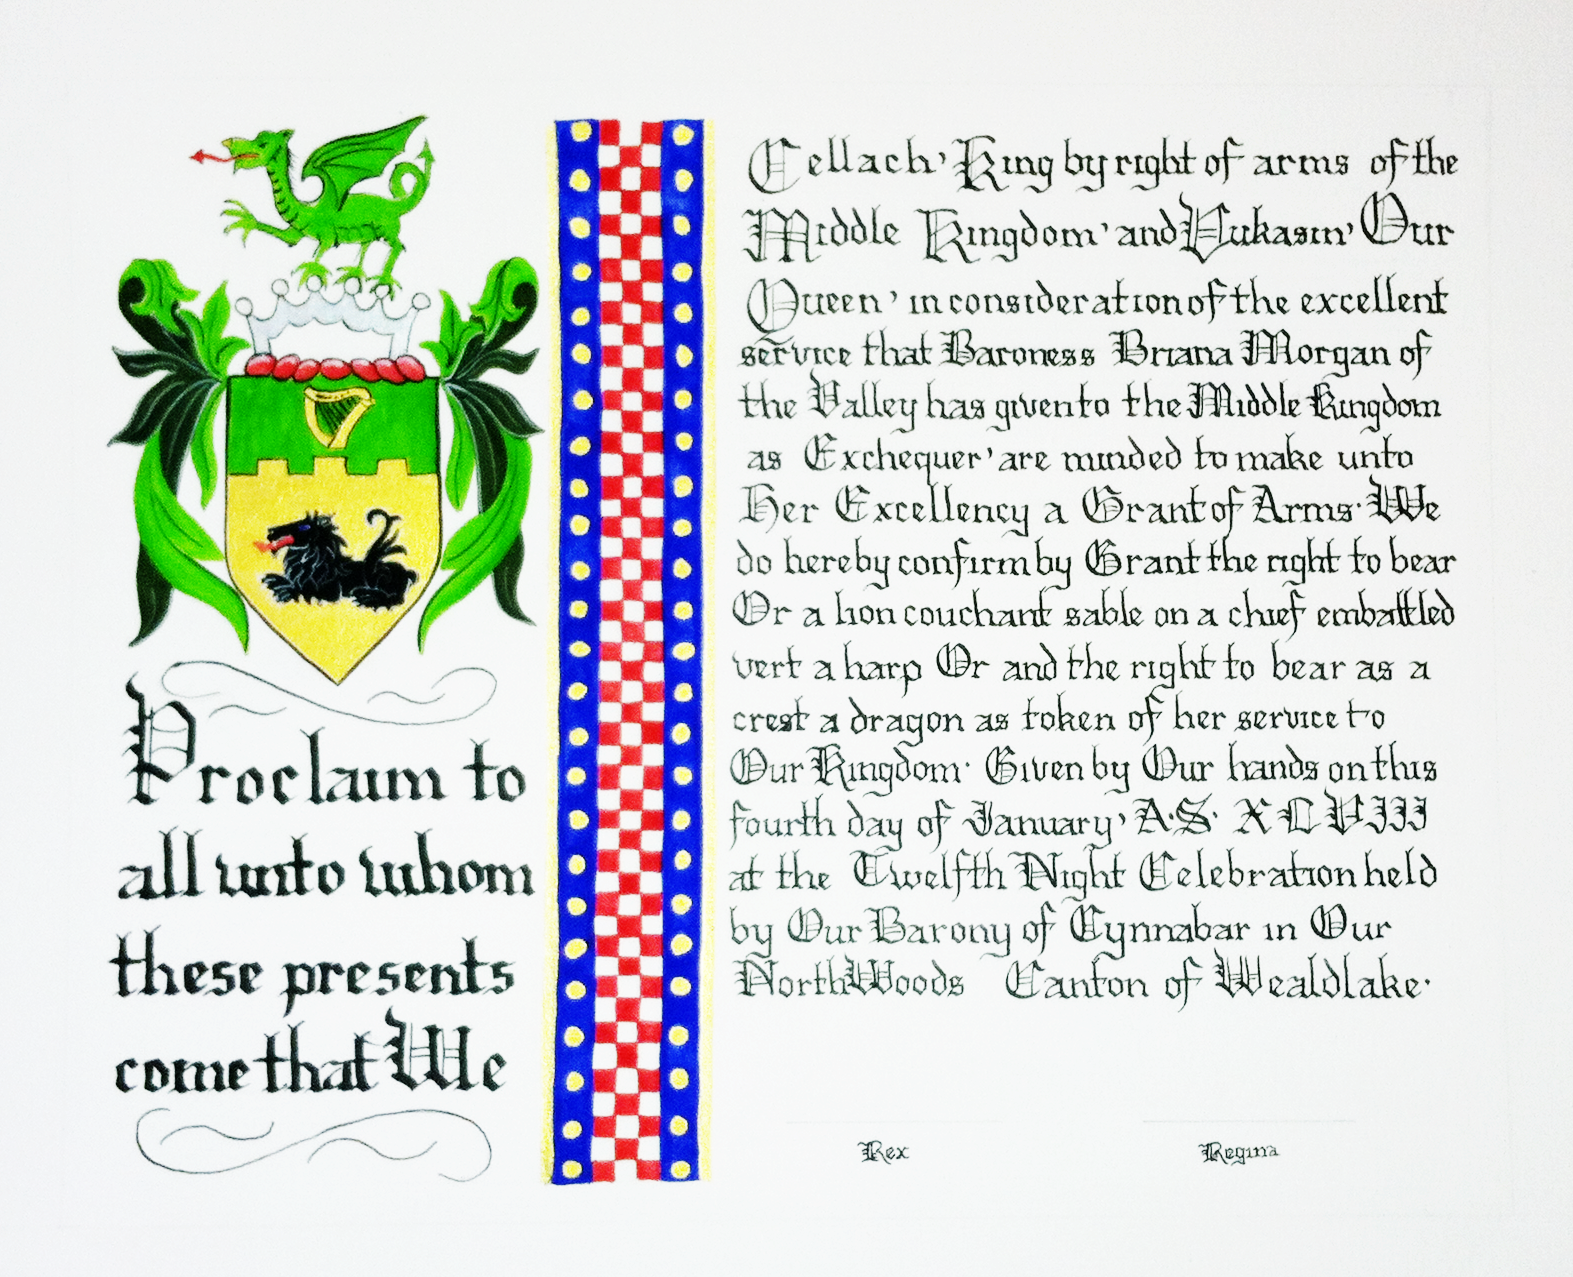 Proclaim to
all unto whom
these presents
come that We
Cellach, King by right of arms of the
Middle Kingdom, and Vukasin, Our
Queen, in consideration of the excellent
service that Baroness Briana Morgan of
the Valley has given to the Middle Kingdom
as Exchequer, are minded to make unto
Her Excellency a Grant of Arms. We
do hereby confirm by Grant the right to bear
Or a lion couchant sable on a chief embattled
vert a harp Or and the right to bear as a
crest a dragon as token of her service to
Our Kingdom. Given by Our hands on this
fourth day of January, A.S. XLVIII
at the Twelfth Night Celebration held
by Our Barony of Cynnabar in Our
NorthWoods Canton of Wealdlake.
Rex Regina